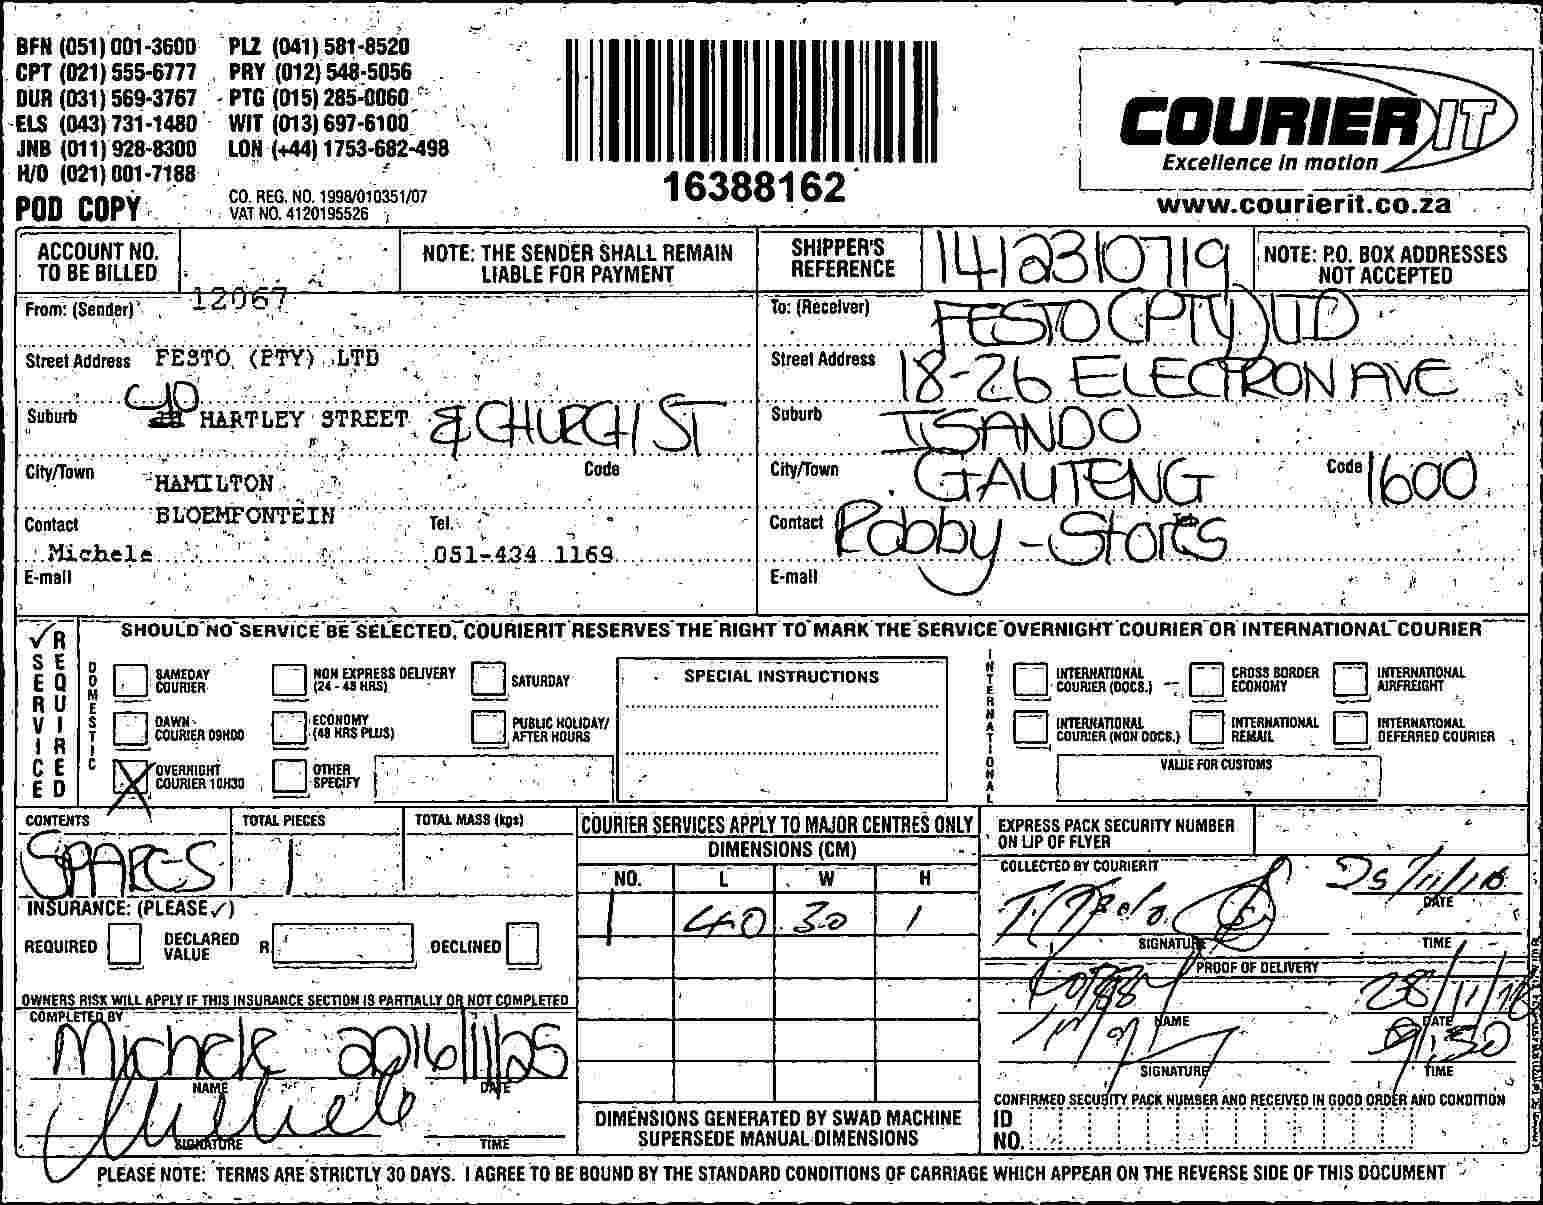 BFN (051) 001-3600 PLZ (041) 581-8520
CPT (021) 555-6777 PRY (012) 548-5056
DUR (031) 569-3767 PTG (015) 285-0060
ELS (043) 731-1480 WIT (013) 697-6100
JNB (011) 928-8300 LON (+44) 1753-682-498
H/O (021) 001-7188
POD COPY
CO. REG. NO. 1998/010351/07
VAT NO. 4120195526
16388162
COURIER IT
Excellence in motion
www.courierit.co.za
ACCOUNT NO. TO BE BILLED
12067
NOTE: THE SENDER SHALL REMAIN LIABLE FOR PAYMENT
SHIPPER'S REFERENCE
1412310719
NOTE: P.O. BOX ADDRESSES NOT ACCEPTED
From: (Sender)
Street Address FESTO (PTY) LTD
Suburb 40 HARTLEY STREET & CHURCH ST
City/Town HAMILTON Code
BLOEMFONTEIN
Contact Michele Tel. 051-434 1169
E-mail
To: (Receiver) FESTO (PTY) LTD
Street Address 18-26 ELECTRON AVE
Suburb ISANDO
City/Town GAUTENG Code 1600
Contact Robby - Stores Tel.
E-mail
✓ SERVICE REQUIRED
SHOULD NO SERVICE BE SELECTED, COURIERIT RESERVES THE RIGHT TO MARK THE SERVICE OVERNIGHT COURIER OR INTERNATIONAL COURIER
DOMESTIC
SAMEDAY COURIER
NON EXPRESS DELIVERY (24 - 48 HRS)
SATURDAY
DAWN COURIER 09H00
ECONOMY (48 HRS PLUS)
PUBLIC HOLIDAY/ AFTER HOURS
X OVERNIGHT COURIER 10H30
OTHER SPECIFY
SPECIAL INSTRUCTIONS
INTERNATIONAL
INTERNATIONAL COURIER (DOCS.)
CROSS BORDER ECONOMY
INTERNATIONAL AIRFREIGHT
INTERNATIONAL COURIER (NON DOCS.)
INTERNATIONAL REMAIL
INTERNATIONAL DEFERRED COURIER
VALUE FOR CUSTOMS
CONTENTS TOTAL PIECES TOTAL MASS (kgs)
SPARES 1
INSURANCE: (PLEASE ✓)
REQUIRED DECLARED VALUE R DECLINED
OWNERS RISK WILL APPLY IF THIS INSURANCE SECTION IS PARTIALLY OR NOT COMPLETED
COMPLETED BY
Michele 2016/11/25
NAME DATE
Michele
SIGNATURE TIME
COURIER SERVICES APPLY TO MAJOR CENTRES ONLY
DIMENSIONS (CM)
NO. L W H
1 40 30 1
DIMENSIONS GENERATED BY SWAD MACHINE SUPERSEDE MANUAL DIMENSIONS
EXPRESS PACK SECURITY NUMBER ON LIP OF FLYER
COLLECTED BY COURIERIT
25/11/16
DATE
SIGNATURE TIME
PROOF OF DELIVERY
28/11/16
NAME DATE
9:50
SIGNATURE TIME
CONFIRMED SECURITY PACK NUMBER AND RECEIVED IN GOOD ORDER AND CONDITION
ID NO.
PLEASE NOTE: TERMS ARE STRICTLY 30 DAYS. I AGREE TO BE BOUND BY THE STANDARD CONDITIONS OF CARRIAGE WHICH APPEAR ON THE REVERSE SIDE OF THIS DOCUMENT